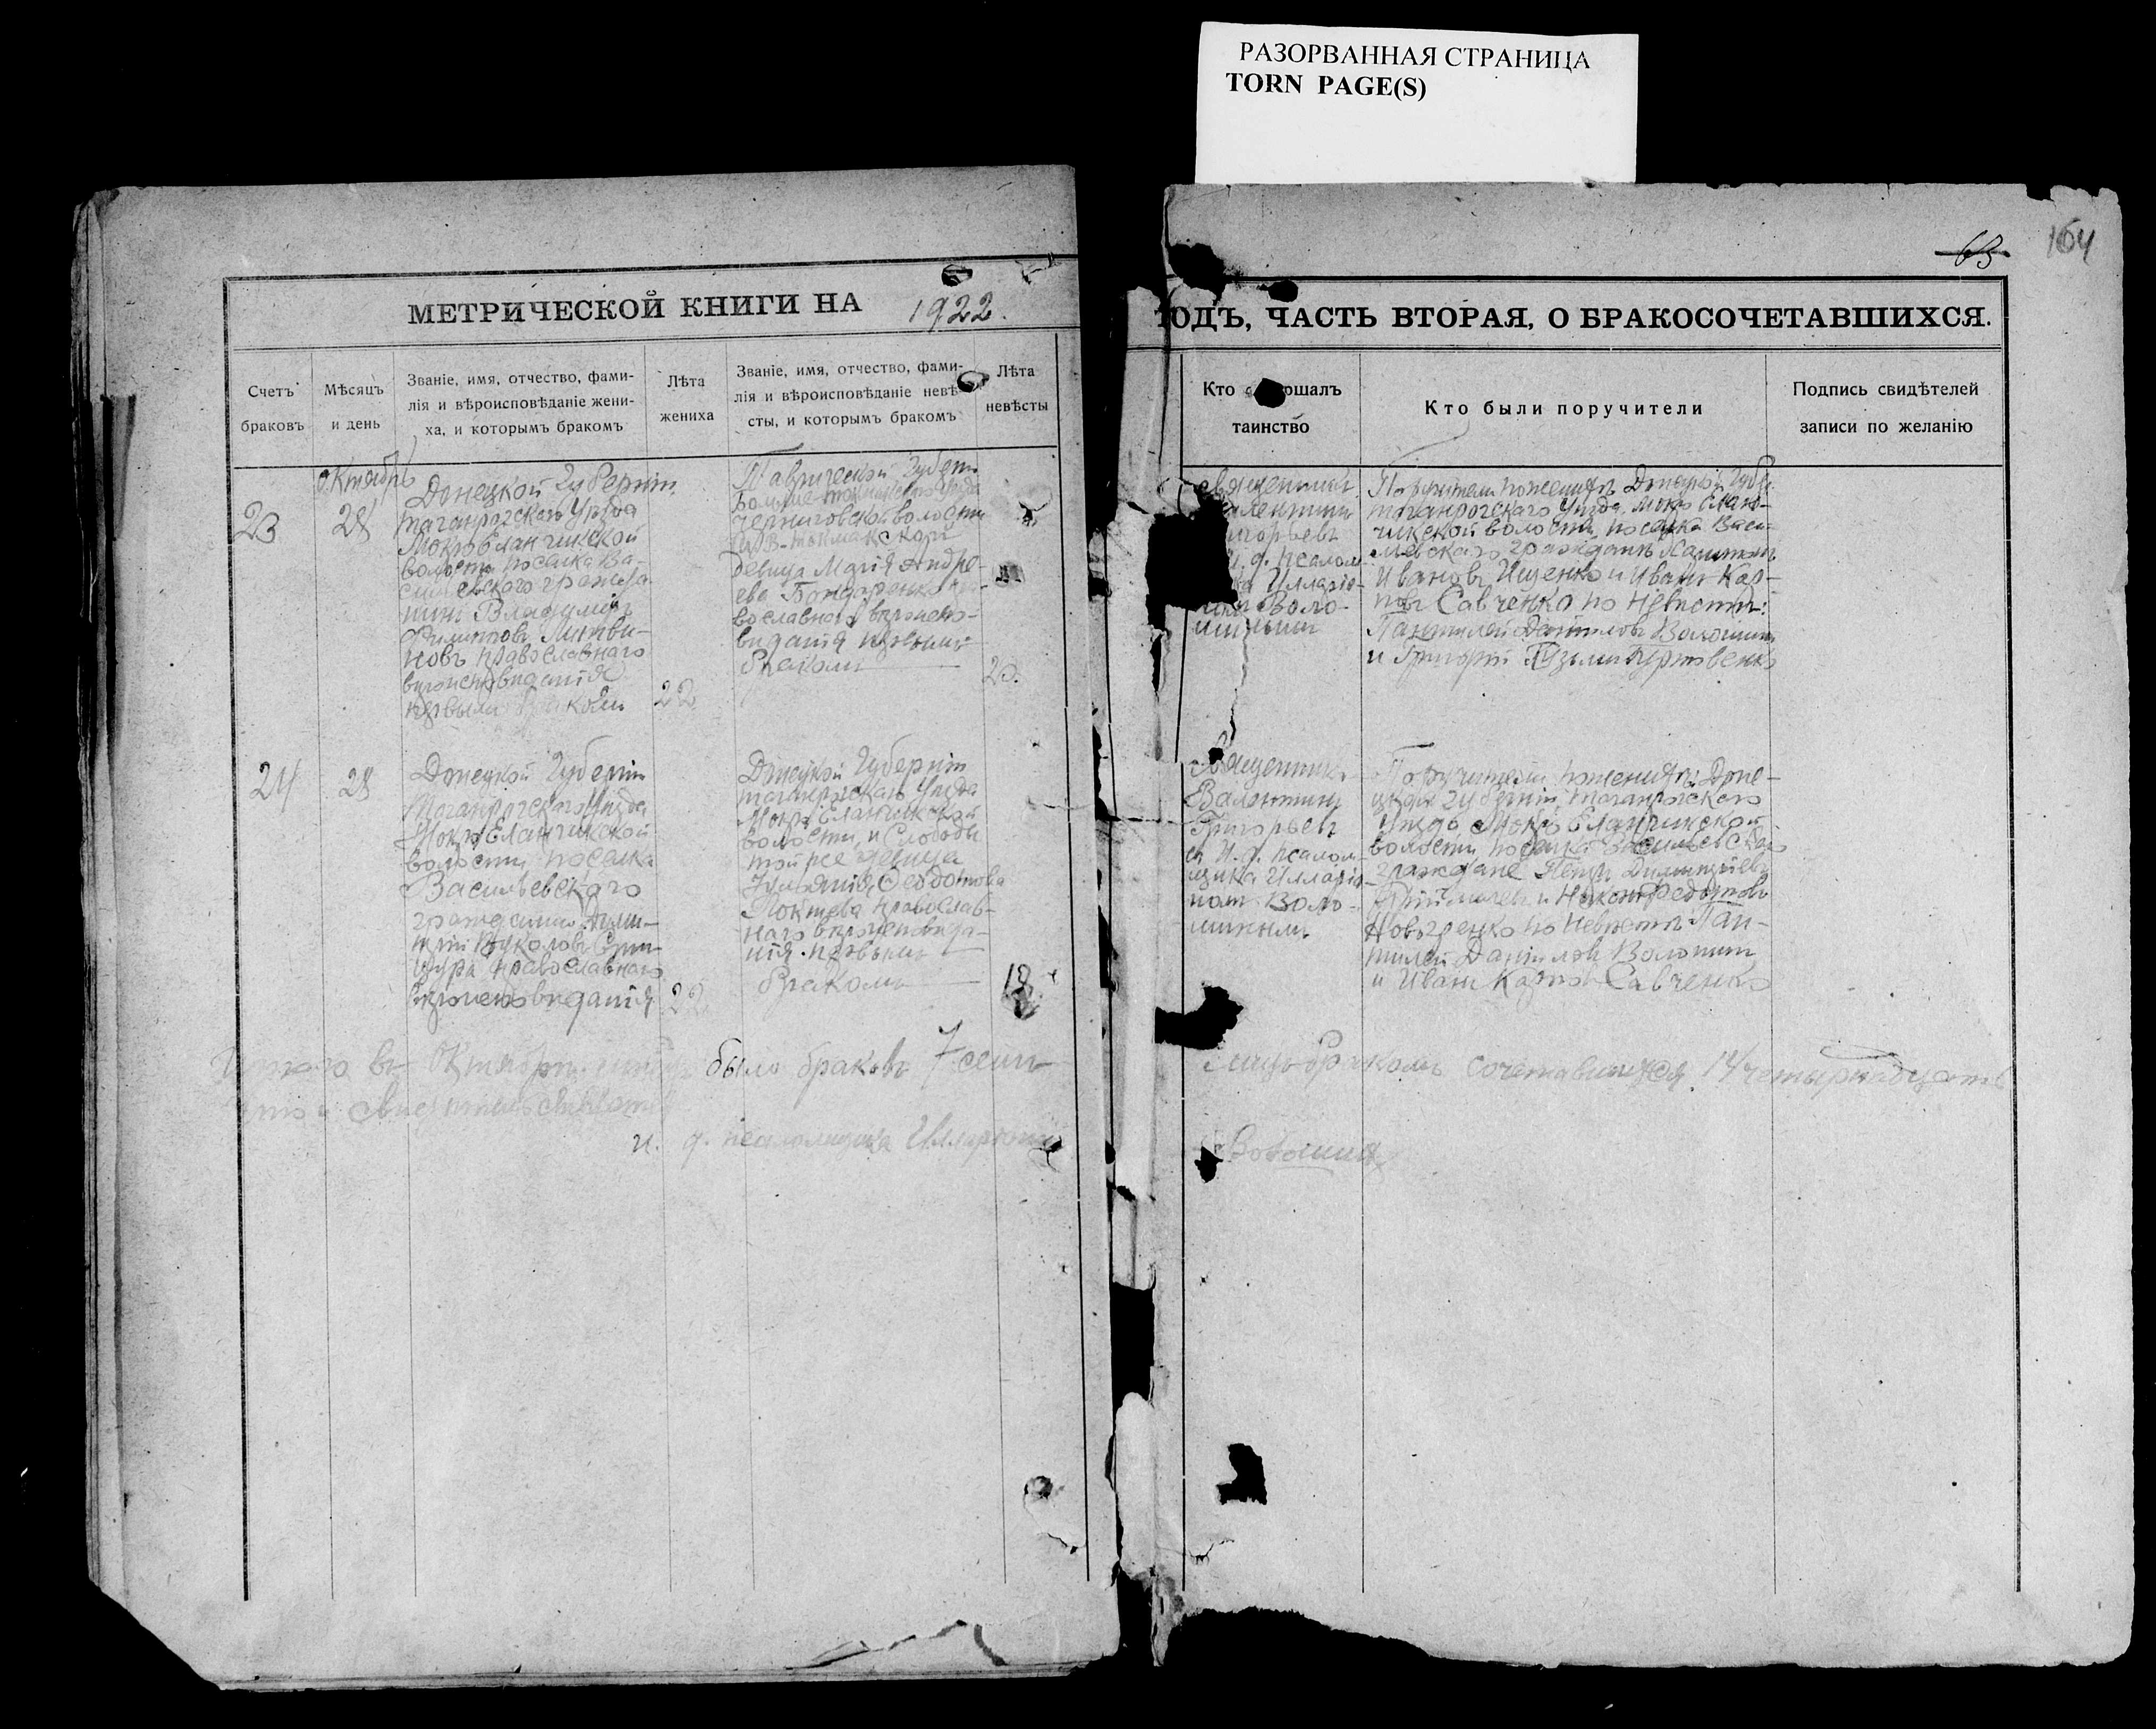 РАЗОРВАННАЯ СТРАНИЦА
TORN PAGE(S)
63
164
МЕТРИЧЕСКОЙ КНИГИ НА 1922.
ГОДЪ, ЧАСТЬ ВТОРАЯ, О БРАКОСОЧЕТАВШИХСЯ.
Счетъ
браковъ
Мѣсяцъ
и день
Званіе, имя, отчество, фами-
лія и вѣроисповѣданіе жени-
ха, и которымъ бракомъ
Лѣта
жениха
Званіе, имя, отчество, фами-
лія и вѣроисповѣданіе невѣ-
сты, и которымъ бракомъ
Лѣта
невѣсты
Кто шалъ
таинство
Кто были поручители
Подпись свидѣтелей
записи по желанію
Октябрь
23
28
Донецкой Губерніи
таганрогскаго Уѣзда
Мокро Еланчикской
волости поселка Ва-
сильевского гражда
нинъ Владимір
Филиппов Литви-
новъ православнаго
вѣроисповѣданія
первымъ бракомъ
22
Таврической Губерн
черниговской волости
девица Марія Андре-
ева Бондаренко
вославнаго вѣроиспо-
вѣданія первымъ
бракомъ
20.
священник
горьевъ
и. д. псалом
Илларіо-
Воло-
шинымъ
Поручители по женихѣ Донецкой Губе.
таганрогскаго Уѣзда, Мокро Елан-
чикской волости поселка Васи-
левскаго граждане
Иванов Ищенко и Иванъ Кар-
повъ Савченко по Невѣстѣ:
Пантилей Данилов Волошин
и Григорій
24
28
Донецкой Губерніи
Таганрогскаго Уѣзда
Мокро Еланчикской
волости, поселка
Васильевскаго
гражданинъ Дими-
трій
православнаго
вѣроисповѣданія
22
Донецкой Губерніи
таганрогскаго Уѣзда
Мокро Еланчикской
волости, и Слободы
тойже девица
Федотова
православ-
наго вѣроисповѣда-
нія первымъ
бракомъ
18
Священникъ
Валентинъ
Григорьевъ
съ И. д. псалом-
щика Илларіо-
ном Воло-
шинымъ
Поручители по женихѣ: Доне-
цкой губерніи, таганрогскаго
Уѣзда, Мокро Еланчикской
волости, поселка Васильевскаго
граждане Петръ Димитріевъ
и Федотовъ
по Невѣстѣ Пан-
тилей Данилов Волошин
и Иванъ Карпов Савченко
Итого въ Октябрѣ было браковъ 7 семь
Лицъ бракомъ сочетавшихся 14 четырнадцать
и. д. псаломщика Илларіон
Волошинъ